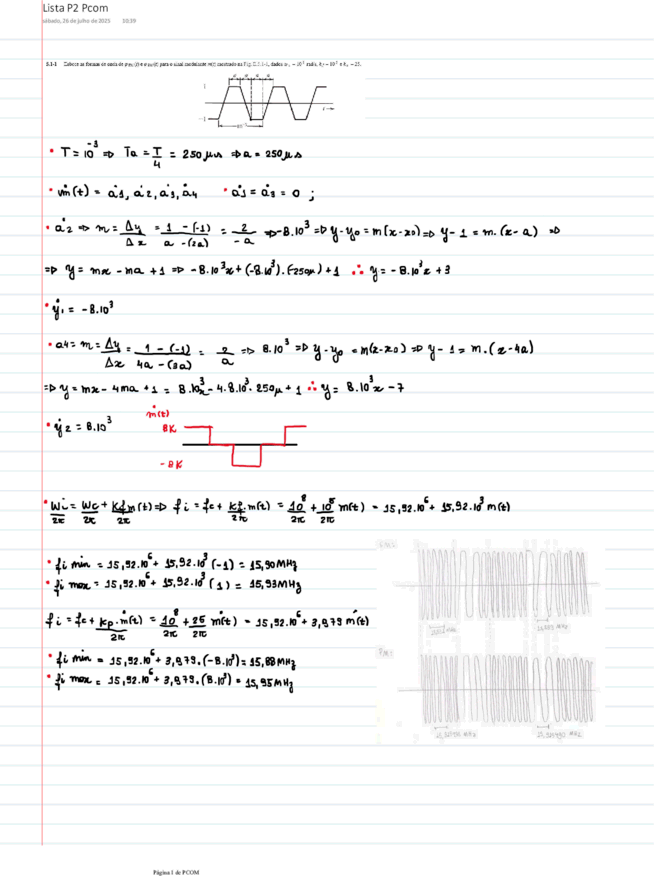 Lista P2 Pcom
sábado, 26 de julho de 2025 10:39
5.1-1 Esboce as formas de onda de φFM(t) e φPM(t) para o sinal modulante m(t) mostrado na Fig. E.5.1-1, dados ωc = 10⁸ rad/s, kf = 10⁵ e kp = 25.
a a a a
1
-1
t
10⁻³
• T = 10⁻³ ⇒ Ta = T/4 = 250 μs ⇒ a = 250 μs
• ṁ(t) = ȧ1, ȧ2, ȧ3, ȧ4 • ȧ1 = ȧ3 = 0 ;
• ȧ2 ⇒ m = Δy/Δx = 1 - (-1)/a - (2a) = 2/-a ⇒ -8.10³ ⇒ y - y0 = m(x - x0) ⇒ y - 1 = m.(x - a) ⇒
⇒ y = mx - ma + 1 ⇒ -8.10³x + (-8.10³).(-250μ) + 1 ∴ y = -8.10³x + 3
• ẏ1 = -8.10³
• a4 = m = Δy/Δx = 1 - (-1)/4a - (3a) = 2/a ⇒ 8.10³ ⇒ y - y0 = m(x - x0) ⇒ y - 1 = m.(x - 4a)
⇒ y = mx - 4ma + 1 = 8.10³x - 4.8.10³.250μ + 1 ∴ y = 8.10³x - 7
• ẏ2 = 8.10³
ṁ(t)
8K
-8K
• Wi/2π = Wc/2π + Kf/2π m(t) ⇒ fi = fc + kf/2π . m(t) = 10⁸/2π + 10⁵/2π m(t) = 15,92.10⁶ + 15,92.10³ m(t)
• fi min = 15,92.10⁶ + 15,92.10³ (-1) = 15,90 MHz
• fi max = 15,92.10⁶ + 15,92.10³ (1) = 15,93 MHz
fi = fc + kp.ṁ(t)/2π = 10⁸/2π + 25/2π ṁ(t) = 15,92.10⁶ + 3,979 ṁ(t)
• fi min = 15,92.10⁶ + 3,979.(-8.10³) = 15,88 MHz
• fi max = 15,92.10⁶ + 3,979.(8.10³) = 15,95 MHz
Página 1 de PCOM